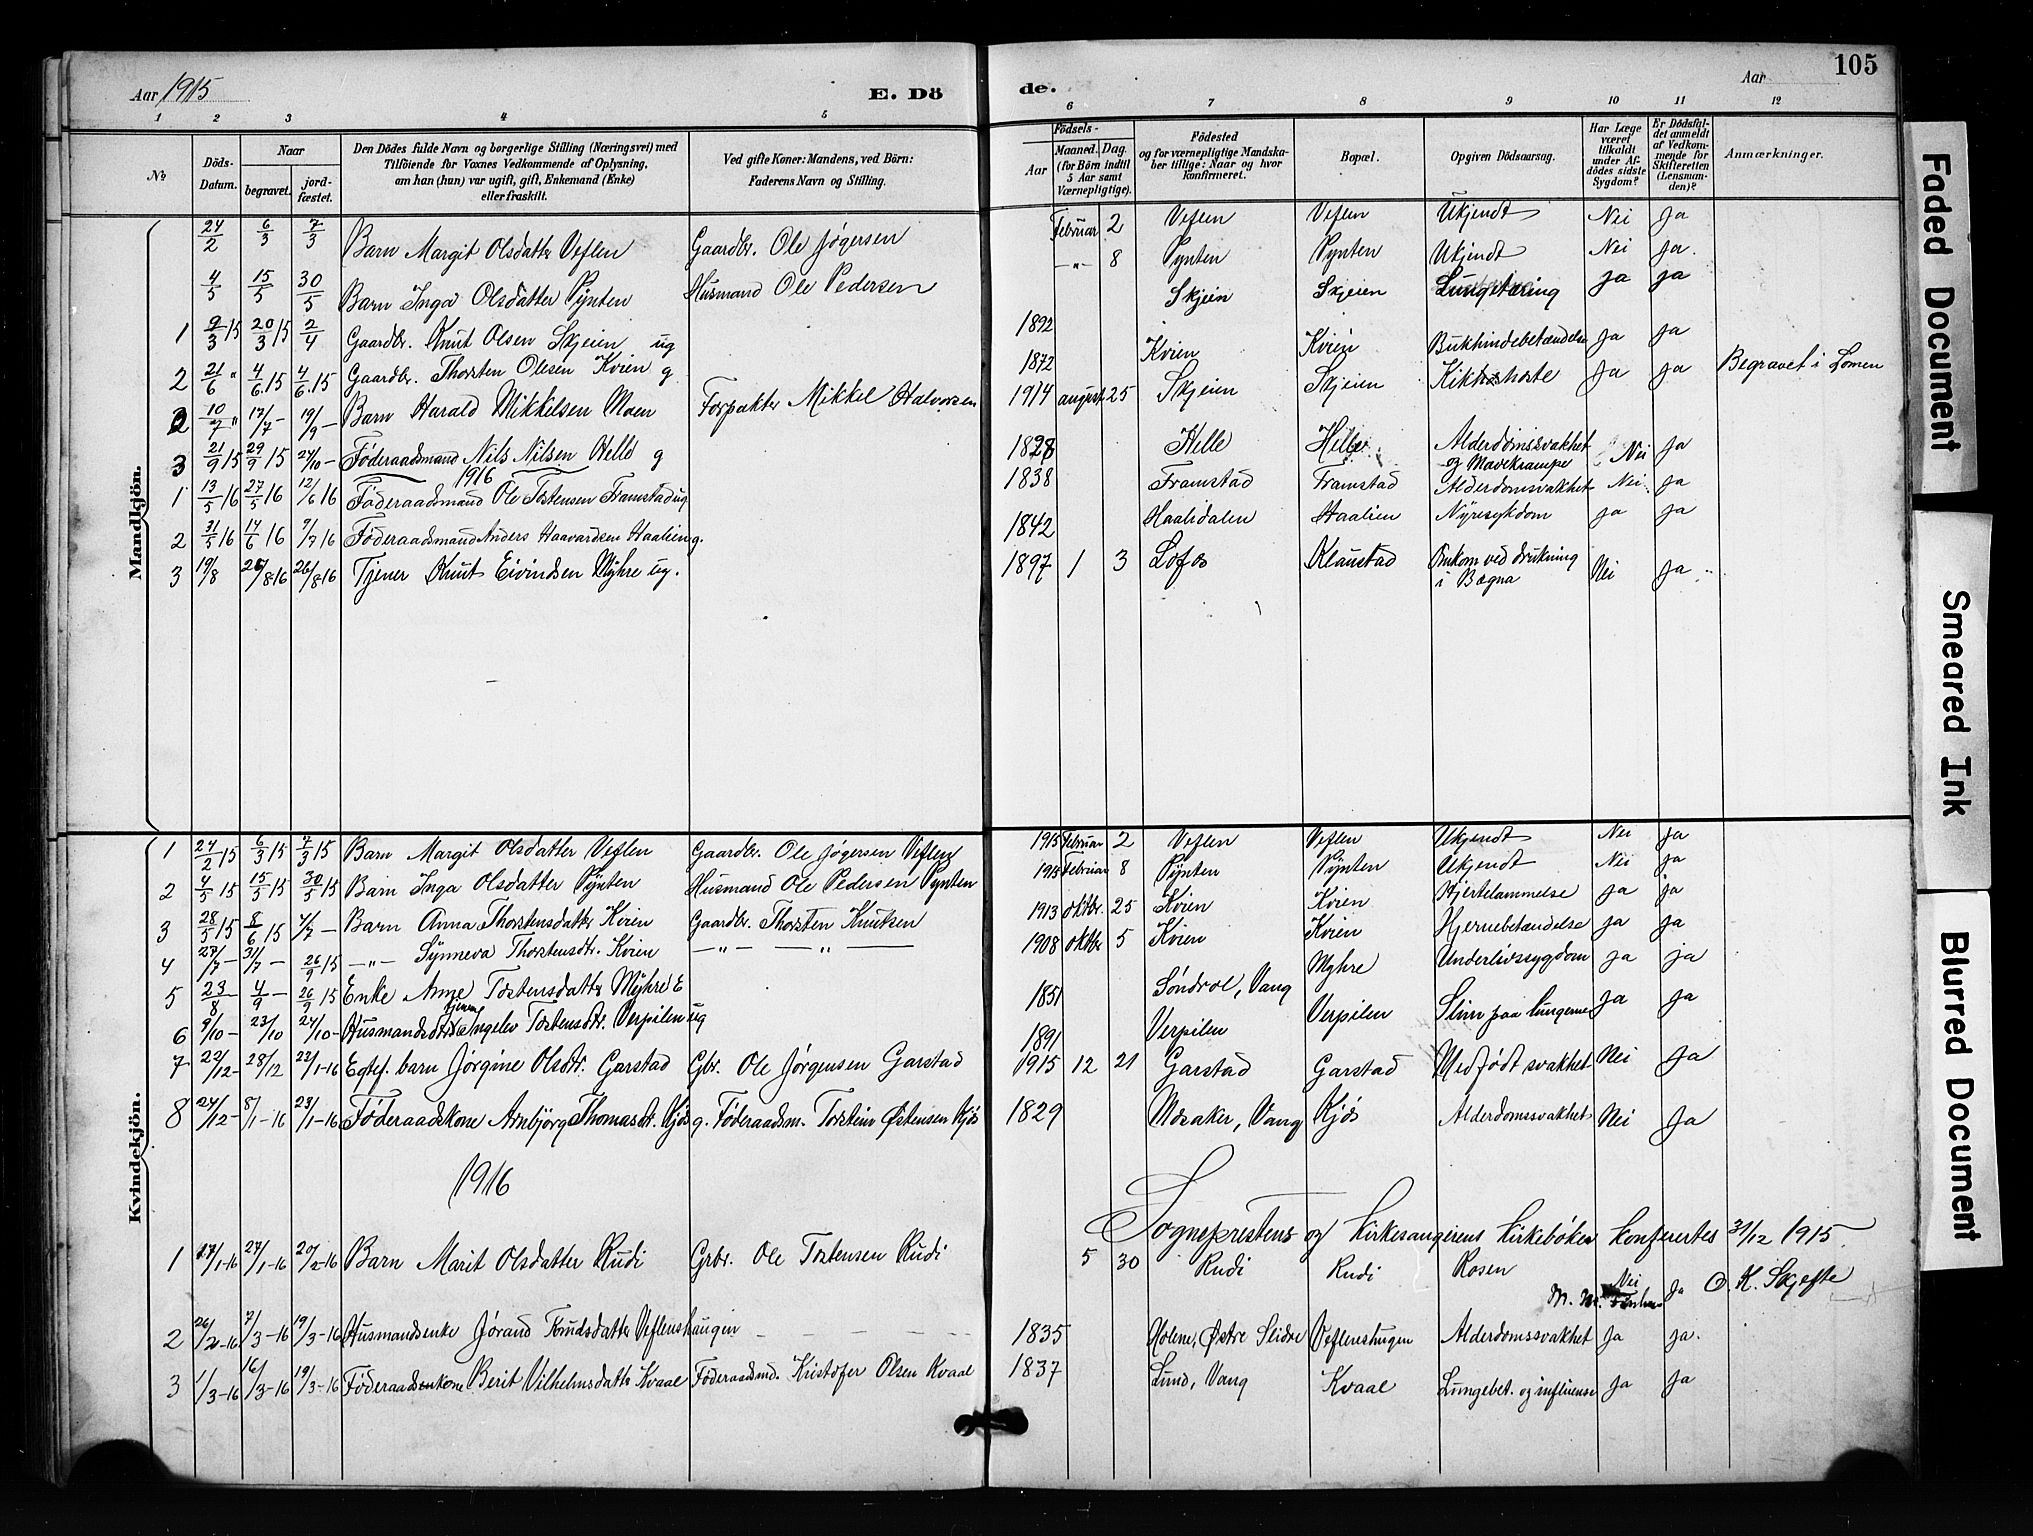 Aar 1915
E. Dö
de.
Aar
105
1 2 3 4 5 6 7 8 9 10 11 12
No
Döds-Datum.
Naar
begravet.
jordfæstet.
Den Dödes fulde Navn og borgerlige Stilling (Næringsvei) med
Tilföiende for Voxnes Vedkommende af Oplysning,
om han (hun) var ugift, gift, Enkemand (Enke)
eller fraskilt.
Ved gifte Koner: Mandens, ved Börn:
Faderens Navn og Stilling.
Födsels-
Aar
Maaned. Dag.
(for Börn indtil
5 Aar samt
Værnepligtige).
Födested
og for værnepligtige Mandskaber tillige: Naar og hvor
konfirmeret.
Bopæl.
Opgiven Dödsaarsag.
Har Læge
været
tilkaldt
under Afdödes sidste
Sygdom?
Er Dödsfaldet anmeldt
af Vedkommende for
Skifteretten
(Lensmanden)?
Anmærkninger.
Mandkjön.
24/2 6/3 7/3 Barn Margit Olsdatter Veflen Gaardbr. Ole Jøgersen Februar 2 Veflen Veflen Ukjendt Nei Ja
4/5 15/5 30/5 Barn Inga Olsdatter Pynten Husmand Ole Pedersen —"— 8 Pynten Pynten Ukjendt Nei Ja.
1 9/3 15 20/3 15 2/4 Gaardbr. Knut Olsen Skjeien ug 1892 Skjein Skjeien Lungetæring Ja Ja
2 21/6 " 4/6.15 4/6.15 Gaardbr. Thorsten Olesen Kvien g 1872 Kvien Kvien Bukhindebetændelse Ja Ja
2 10/7 " 17/7 - 19/9 - Barn Harald Mikkelsen Moen Forpakter Mikkel Halvorsen 1914 august 25 Skjeien Skjeien Kikhoste Ja Ja Begravet i Lomen
3 21/9 15 29/9 15 24/10 - Føderaadsmand Nils Nilsen Helle g 1828 Helle Helle Alderdomssvakhet og Mavekrampe Nei Ja
1916
1 13/5 16 27/5 16 12/6 16 Føderaadsmand Ole Tostensen Framstad ug 1838 Framstad Framstad Alderdomsvakhet Nei Ja
2 31/5 16 14/6 16 9/7 16 Føderaadsmand Anders Haavardsen Haalien g. 1842 Haalidalen Haalien Nyresykdom Ja Ja
3 19/8 26/8 16 26/8 16 Tjener Knut Eivindsen Myhre ug. 1897 1 3 Lofos Klaustad Omkom ved drukning i Bægna Nei Ja
Kvindekjön.
1 24/2 15 6/3 15 7/3 15 Barn Margit Olsdatter Veflen Gaardbr. Ole Jøgersen Veflen 1915 Februar 2 Veflen Veflen Ukjendt Nei Ja
2 4/5 15 15/5 15 30/5 15 Barn Inga Olsdatter Pynten Husmand Ole Pedersen Pynten 1915 Februar 8 Pynten Pynten Ukjendt Nei Ja
3 28/5 15 8/6 15 4/7 - Barn Anna Thorstensdatter Kvien Gaardbr. Thorsten Knutsen 1913 oktbr. 25 Kvien Kvien Hjertelammelse Ja Ja
4 27/7 - 31/7 - 26/9 15 —"— Synneva Thorstensdtr. Kvien —"— —"— 1908 oktbr 5 Kvien Kvien Hjernebetændelse Ja Ja
5 23/8 - 4/9 - 26/9 15 Enke Anne Tostensdatter Myhre E 1851 Søndrol, Vang Myhre Underlivssygdom Ja Ja
6 9/10 - 23/10 24/10 - Husmandsdtr. Ingelev Tostensdtr. Verpilen ug 1891 Verpilen Verpilen Slim paa lungerne Ja Ja
7 22/12 - 28/12 22/1-16 Egtef. barn Jørgine Olsdtr. Garstad Gbr. Ole Jørgensen Garstad 1915 12 21 Garstad Garstad Medfødt svakhet Nei Ja
8 24/12 - 8/1-16 23/1-16 Føderaadskone Arnbjørg Thomasdtr. Kjøs g. Føderaadsm. Torstein Østensen Kjøs 1829 Mosaker, Vang Kjøs Alderdomssvakhet Nei Ja
1916
Sogneprestens og Kirkesangerens Kirkebøker konfirertes 31/12 1915.
1 17/1-16 27/1-16 20/2-16 Barn Marit Olsdatter Rudi Grbr. Ole Tostensen Rudi 5 30 Rudi Rudi Rosen Nei Ja O. K. Skjefte
2 26/2-16 7/3-16 19/3-16 Husmandsenke Jørand Trudsdatter Veflenshaugen 1835 Holene, Østre Slidre Veflenshugen Alderdomssvakhet Ja Ja.
3 1/3-16 16/3-16 19/3-16 Føderaadskone Berit Vilhelmsdatter Kvaal Føderaadsmd. Kristofer Olsen Kvaal 1837 Lund, Vang Kvaal Lungebet. og influensa Ja Ja
Faded Document
Smeared Ink
Blurred Document